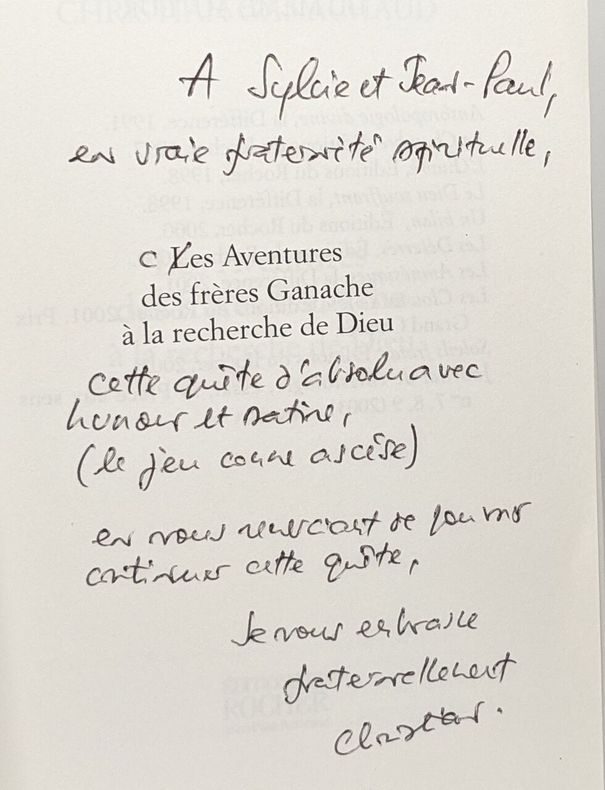 A Sylvie et Jean-Paul,
en vraie fraternité spirituelle,
C Les Aventures
des frères Ganache
à la recherche de Dieu
cette quête d'absolu avec
humour et satire,
(le jeu comme ascèse)
en vous remerciant de
continuer cette quête,
Je vous embrasse
fraternellement